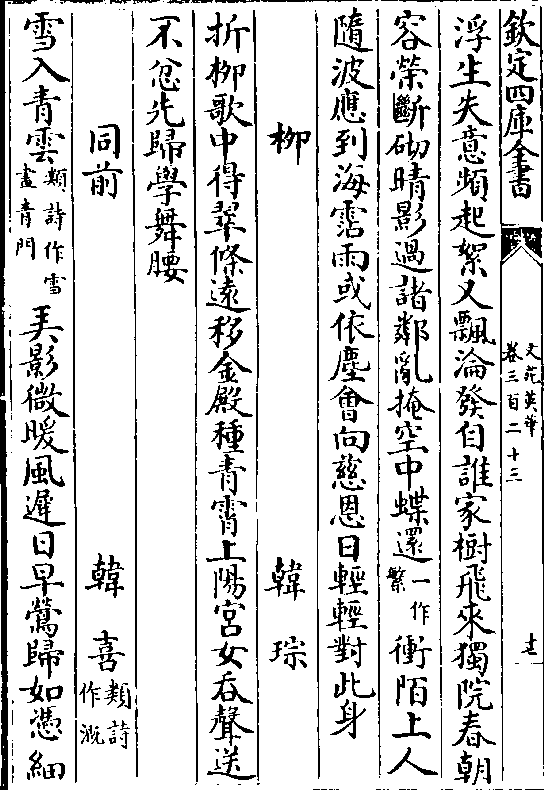 欽定四庫全書
文苑英華
卷三百二十三
浮生失意頻起絮又飄淪發自誰家樹飛來獨院春朝
容縈斷砌晴影過諸鄰亂掩空中蝶還一作繁衝陌上人
隨波應到海霑雨或依塵會向慈恩日輕輕對此身
柳 韓琮
折柳歌中得翠條遠移金殿種青霄上陽宮女吞聲送
不忿先歸學舞腰
同前 韓喜類詩作溉
雪入青雲類詩作雪盡青門弄影微暖風遲日早鶯歸如憑細